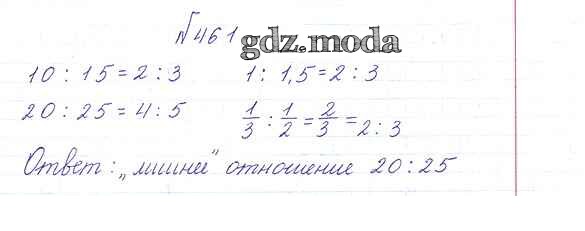 №461 gdz.moda
10 : 15 = 2 : 3   1 : 1,5 = 2 : 3
20 : 25 = 4 : 5   1/3 : 1/2 = 2/3 = 2 : 3
Ответ: „лишнее" отношение 20 : 25